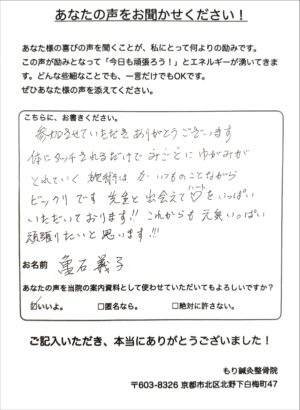 あなたの声をお聞かせください！
あなた様の喜びの声を聞くことが、私にとって何よりの励みです。
この声が励みとなって「今日も頑張ろう！」とエネルギーが湧いてきま
す。どんな些細なことでも、一言だけでもOKです。
ぜひあなた様の声を添えてください。
こちらに、お書きください。
参加させていただきありがとうございます
体にタッチされるだけで みごとに ゆがみが
とれていく 施術は いつものことながら
ビックリです 先生と出会えて♡をいっぱい
ハート
いただいております!! これからも 元気いっぱい
頑張りたいと思います!!!
お名前 亀石義子
あなたの声を当院の案内資料として使わせていただいてもよろしいですか？
☑いいよ。 □匿名なら。 □絶対に許さない。
ご記入いただき、本当にありがとうございました！
もり鍼灸整骨院
〒603-8326 京都市北区北野下白梅町47